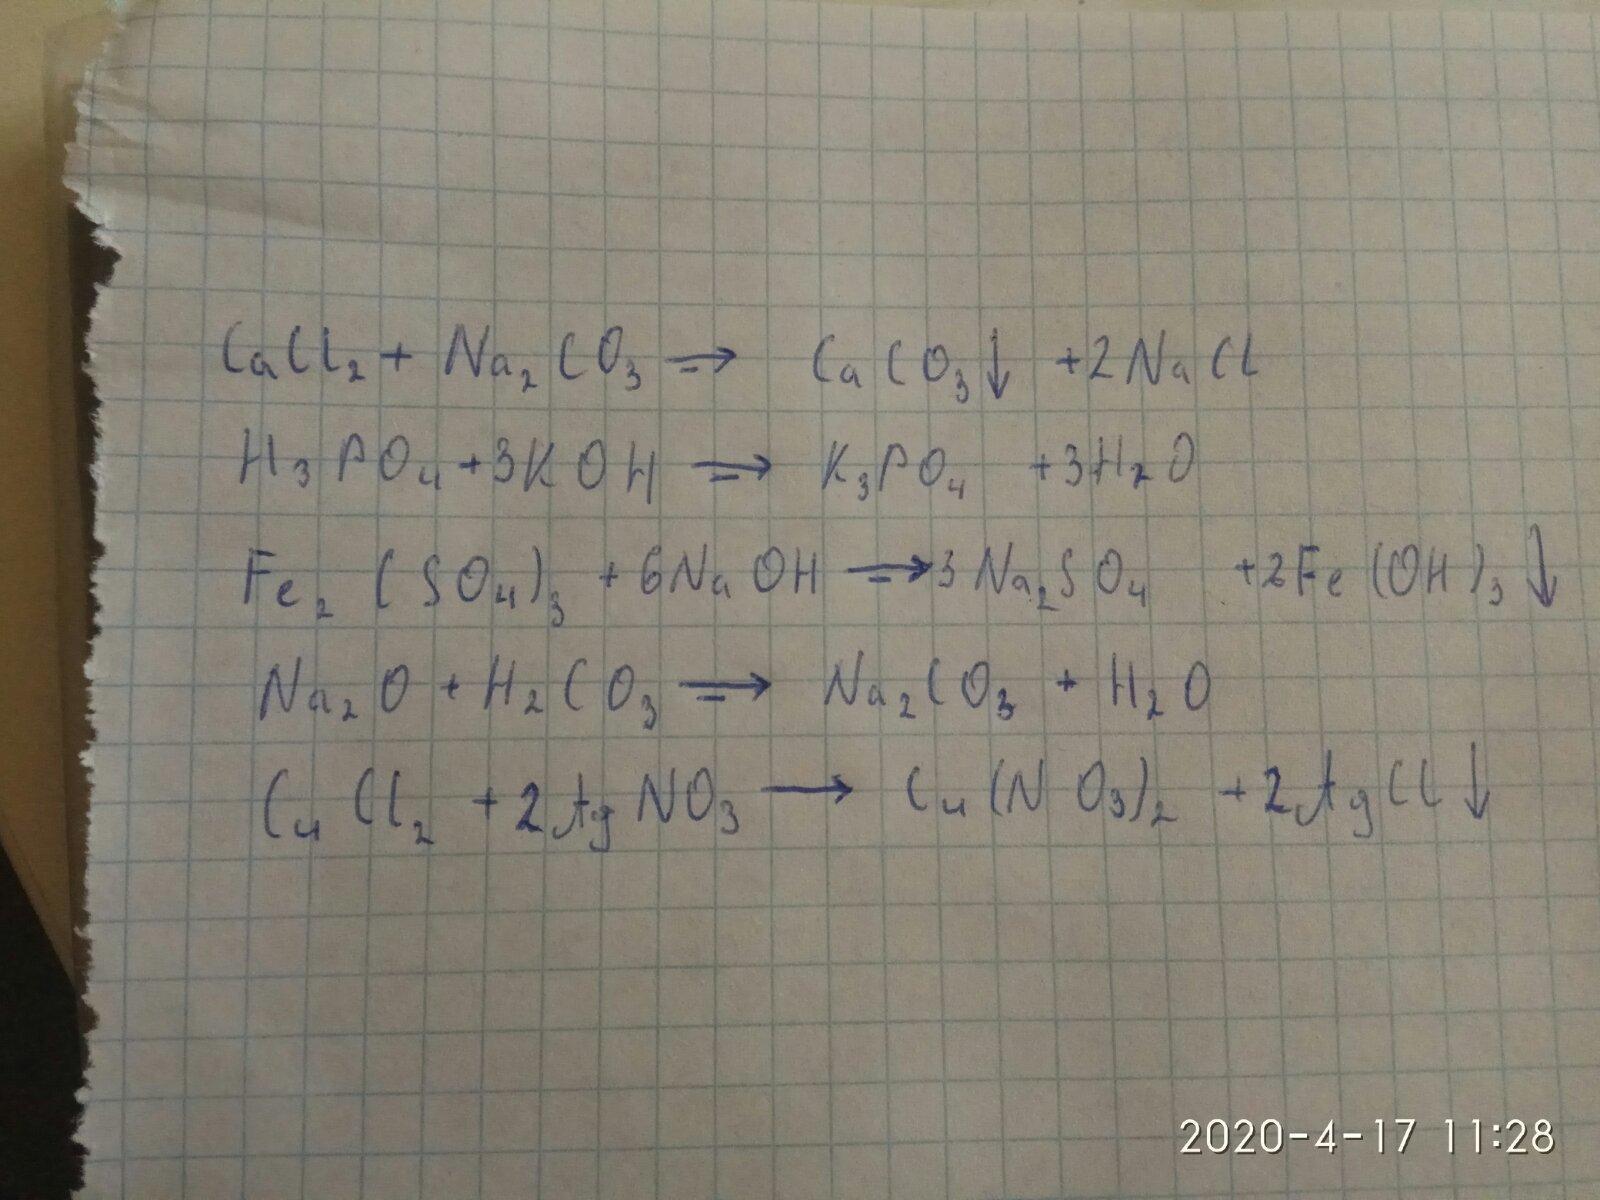 CaCl₂ + Na₂CO₃ → CaCO₃↓ +2NaCl
H₃PO₄ +3KOH → K₃PO₄ +3H₂O
Fe₂(SO₄)₃ +6NaOH → 3Na₂SO₄ +2Fe(OH)₃↓
Na₂O + H₂CO₃ → Na₂CO₃ + H₂O
CuCl₂ +2AgNO₃ → Cu(NO₃)₂ +2AgCl↓
2020-4-17 11:28